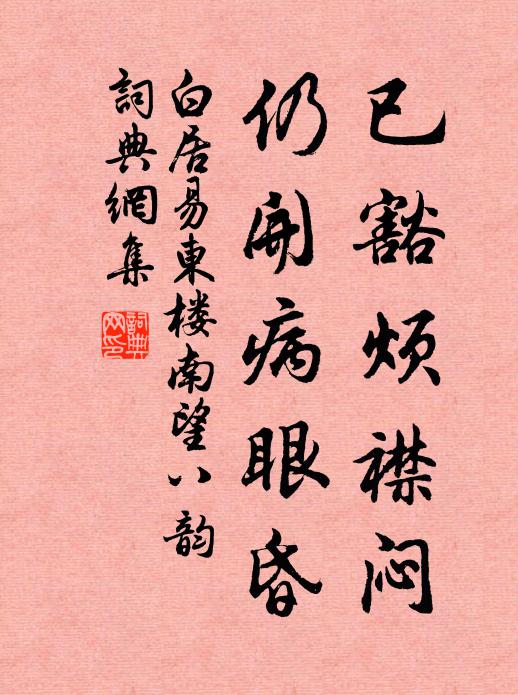 已豁烦襟闷
仍开病眼昏
白居易東楼南望八韵
詞典網集
詞典
网印